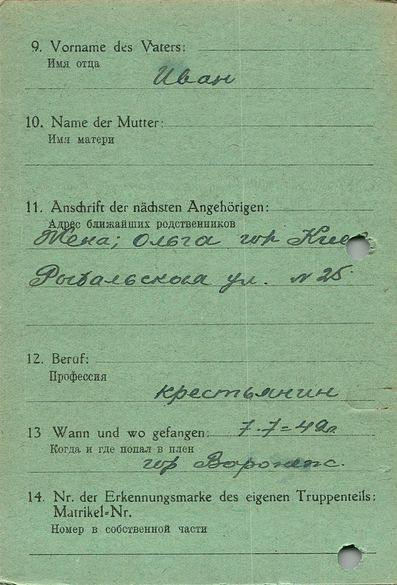 9. Vorname des Vaters:
Имя отца
Иван
10. Name der Mutter:
Имя матери
11. Anschrift der nächsten Angehörigen:
Адрес ближайших родственников
Жена; Ольга гор Киев
Рыбальская ул. №25
12. Beruf:
Профессия
крестьянин
13 Wann und wo gefangen: 7.7=42г
Когда и где попал в плен
гор Воронеж.
14. Nr. der Erkennungsmarke des eigenen Truppenteils:
Matrikel=Nr.
Номер в собственной части